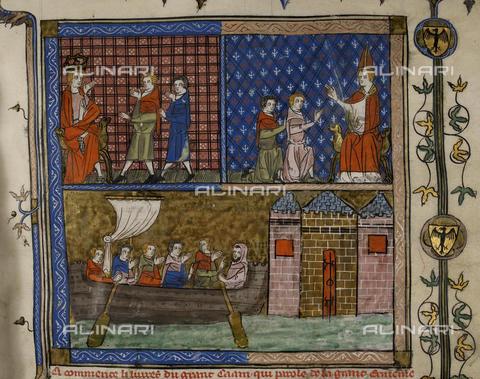 ALINARI ALINARI
ALINARI
ALINARI ALINARI
Ci commence li liures du grant Caam qui parole de la grant Ermenie